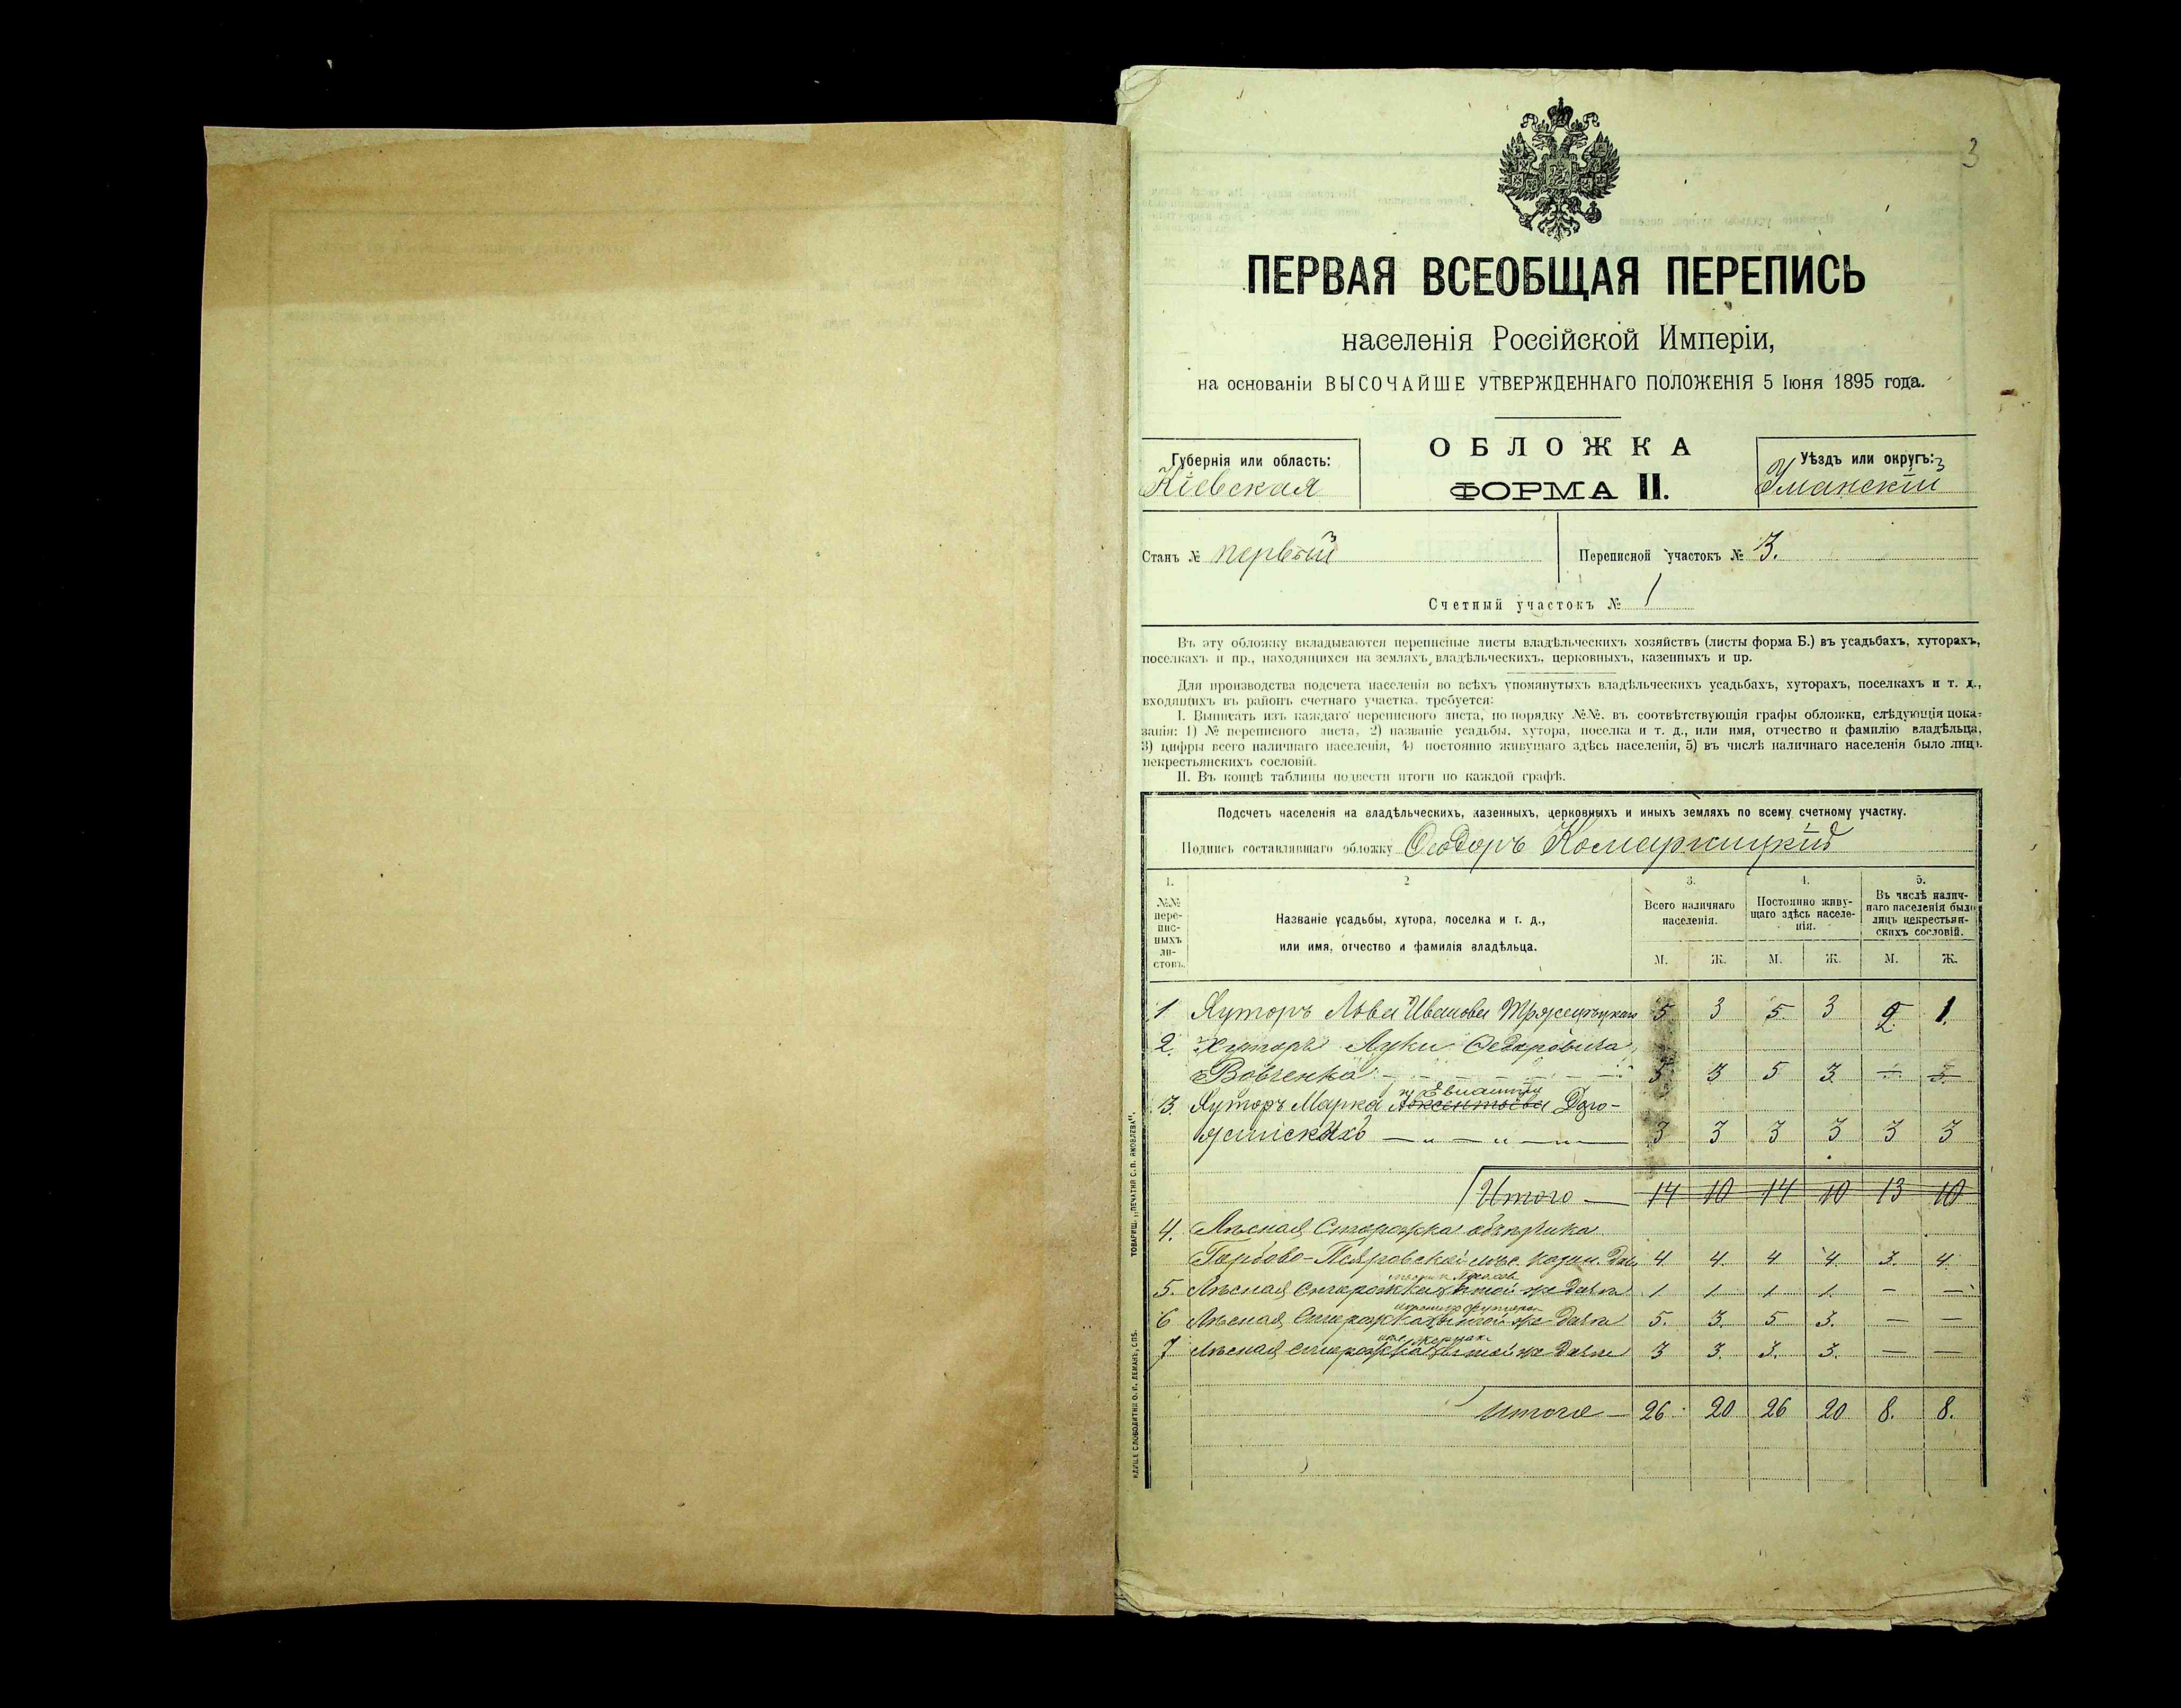 3
ПЕРВАЯ ВСЕОБЩАЯ ПЕРЕПИСЬ
населенія Россійской Имперіи,
на основаніи ВЫСОЧАЙШЕ УТВЕРЖДЕННАГО ПОЛОЖЕНІЯ 5 Іюня 1895 года.
ОБЛОЖКА
ФОРМА II.
Губернія или область:
Кіевская
Уѣздъ или округъ:
Уманскій
Станъ № первый
Переписной участокъ № 3.
Счетный участокъ № 1
Въ эту обложку вкладываются переписные листы владѣльческихъ хозяйствъ (листы форма Б.) въ усадьбахъ, хуторахъ,
поселкахъ и пр., находящихся на земляхъ владѣльческихъ, церковныхъ, казенныхъ и пр.
Для производства подсчета населенія во всѣхъ упомянутыхъ владѣльческихъ усадьбахъ, хуторахъ, поселкахъ и т. д.,
входящихъ въ районъ счетнаго участка, требуется:
I. Выписать изъ каждаго переписного листа, по порядку №№. въ соотвѣтствующія графы обложки, слѣдующія пока-
занія: 1) № переписного листа, 2) названіе усадьбы, хутора, поселка и т. д., или имя, отчество и фамилію владѣльца,
3) цифры всего наличнаго населенія, 4) постоянно живущаго здѣсь населенія, 5) въ числѣ наличнаго населенія было лицъ
некрестьянскихъ сословій.
II. Въ концѣ таблицы подвести итоги по каждой графѣ.
Подсчетъ населенія на владѣльческихъ, казенныхъ, церковныхъ и иныхъ земляхъ по всему счетному участку.
Подпись составлявшаго обложку Ѳеодоръ
1. 2 3. 4. 5.
№№ пере-писныхъ ли-стовъ.
Названіе усадьбы, хутора, поселка и т. д.,
или имя, отчество и фамилія владѣльца.
Всего наличнаго населенія.
Постоянно живу-щаго здѣсь населе-нія.
Въ числѣ налич-наго населенія было лицъ некрестьян-скихъ сословій.
М. Ж. М. Ж. М. Ж.
1 Хуторъ Льва Иванова 5 3 5. 3 2. 1.
2. Хуторъ Луки Ѳедоровича
Вовченка 5 3 5 3 5.
3. Хуторъ Марка
3 3 3 3 3 3
Итого 14 10 14 10 13 10
4. Лѣсная Сторожка объѣздчика
4 4. 4 4. 3. 4.
5. Лѣсная Сторожка въ той же дачѣ 1 1 1 1 — —
6 Лѣсная Сторожка въ той же дачѣ 5. 3. 5 3. — —
7 Лѣсная сторожка въ той же дачѣ 3 3. 3. 3. — —
Итого 26 20 26 20 8. 8.
ТОВАРИЩ. „ПЕЧАТНЯ С. П. ЯКОВЛЕВА".